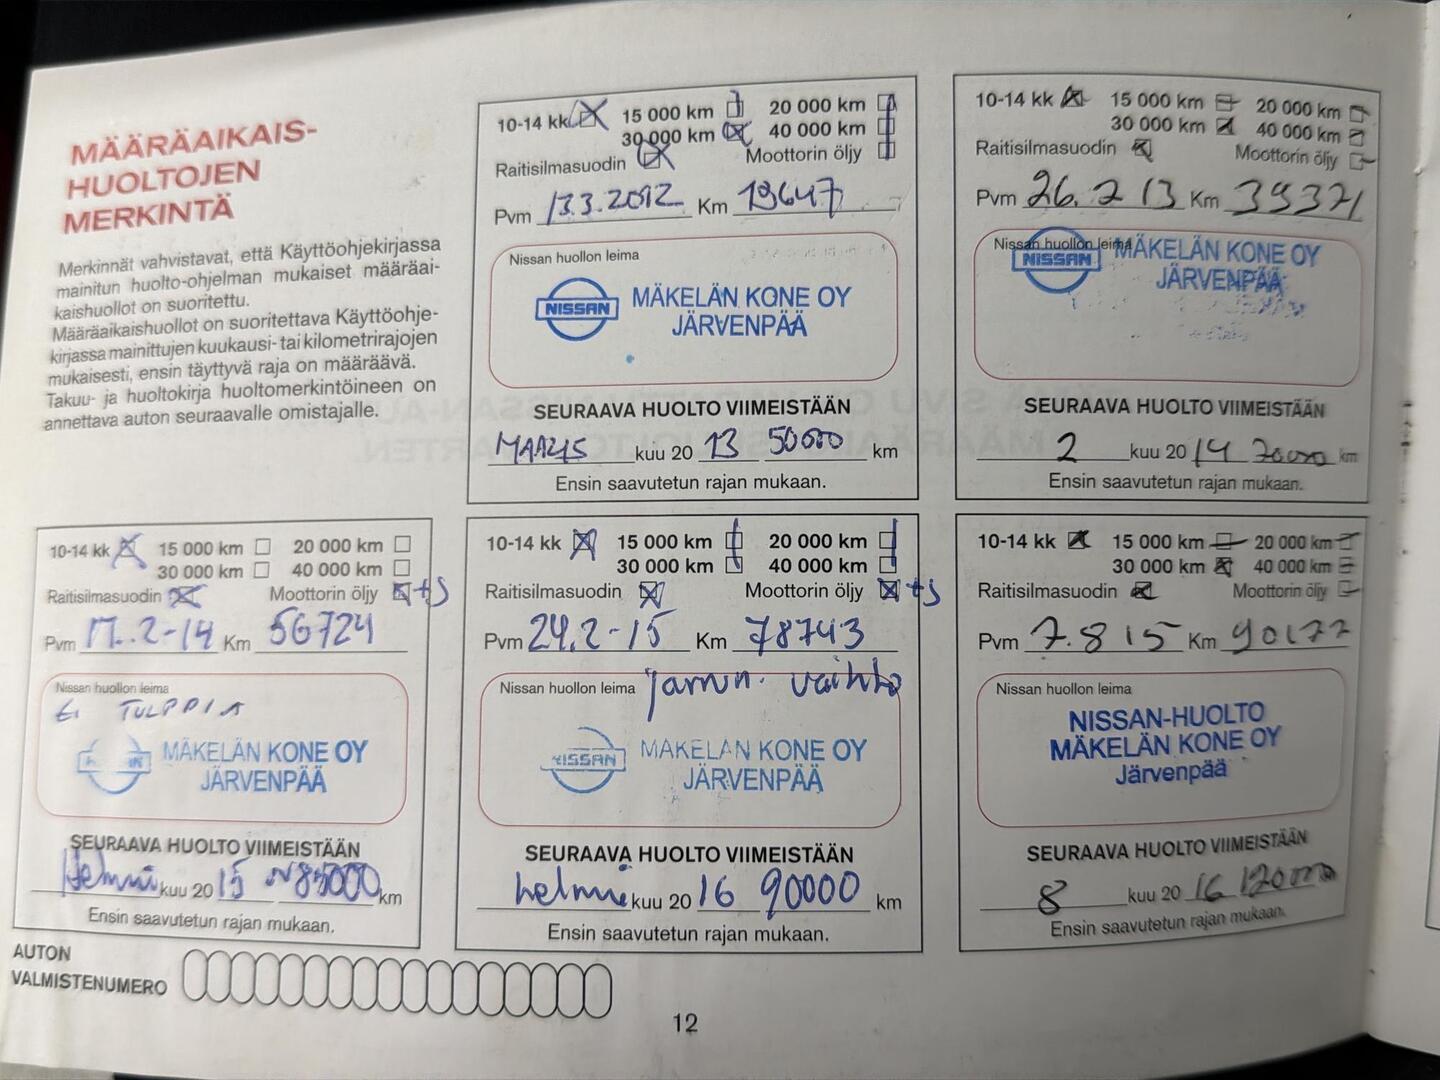 MÄÄRÄAIKAIS-
HUOLTOJEN
MERKINTÄ
Merkinnät vahvistavat, että Käyttöohjekirjassa
mainitun huolto-ohjelman mukaiset määräai-
kaishuollot on suoritettu.
Määräaikaishuollot on suoritettava Käyttöohje-
kirjassa mainittujen kuukausi- tai kilometrirajojen
mukaisesti, ensin täyttyvä raja on määräävä.
Takuu- ja huoltokirja huoltomerkintöineen on
annettava auton seuraavalle omistajalle.
10-14 kk 15 000 km 20 000 km
30 000 km 40 000 km
Raitisilmasuodin Moottorin öljy
Pvm 13.3.2012 Km 19647
Nissan huollon leima
NISSAN MÄKELÄN KONE OY
JÄRVENPÄÄ
SEURAAVA HUOLTO VIIMEISTÄÄN
MAALIS kuu 20 13 50000 km
Ensin saavutetun rajan mukaan.
10-14 kk 15 000 km 20 000 km
30 000 km 40 000 km
Raitisilmasuodin Moottorin öljy
Pvm 26.2 13 Km 39371
Nissan huollon leima
NISSAN MÄKELÄN KONE OY
JÄRVENPÄÄ
SEURAAVA HUOLTO VIIMEISTÄÄN
2 kuu 20 14 70000 km
Ensin saavutetun rajan mukaan.
10-14 kk 15 000 km 20 000 km
30 000 km 40 000 km
Raitisilmasuodin Moottorin öljy +S
Pvm 17.2-14 Km 56724
Nissan huollon leima
Ei TULPPIA
MÄKELÄN KONE OY
JÄRVENPÄÄ
SEURAAVA HUOLTO VIIMEISTÄÄN
Helmi kuu 20 15 ~85000 km
Ensin saavutetun rajan mukaan.
10-14 kk 15 000 km 20 000 km
30 000 km 40 000 km
Raitisilmasuodin Moottorin öljy +S
Pvm 24.2-15 Km 78743
Nissan huollon leima jarrun. vaihto
NISSAN MÄKELÄN KONE OY
JÄRVENPÄÄ
SEURAAVA HUOLTO VIIMEISTÄÄN
helmi kuu 20 16 90000 km
Ensin saavutetun rajan mukaan.
10-14 kk 15 000 km 20 000 km
30 000 km 40 000 km
Raitisilmasuodin Moottorin öljy
Pvm 7.8 15 Km 90177
Nissan huollon leima
NISSAN-HUOLTO
MÄKELÄN KONE OY
Järvenpää
SEURAAVA HUOLTO VIIMEISTÄÄN
8 kuu 20 16 120000
Ensin saavutetun rajan mukaan.
AUTON
VALMISTENUMERO
12